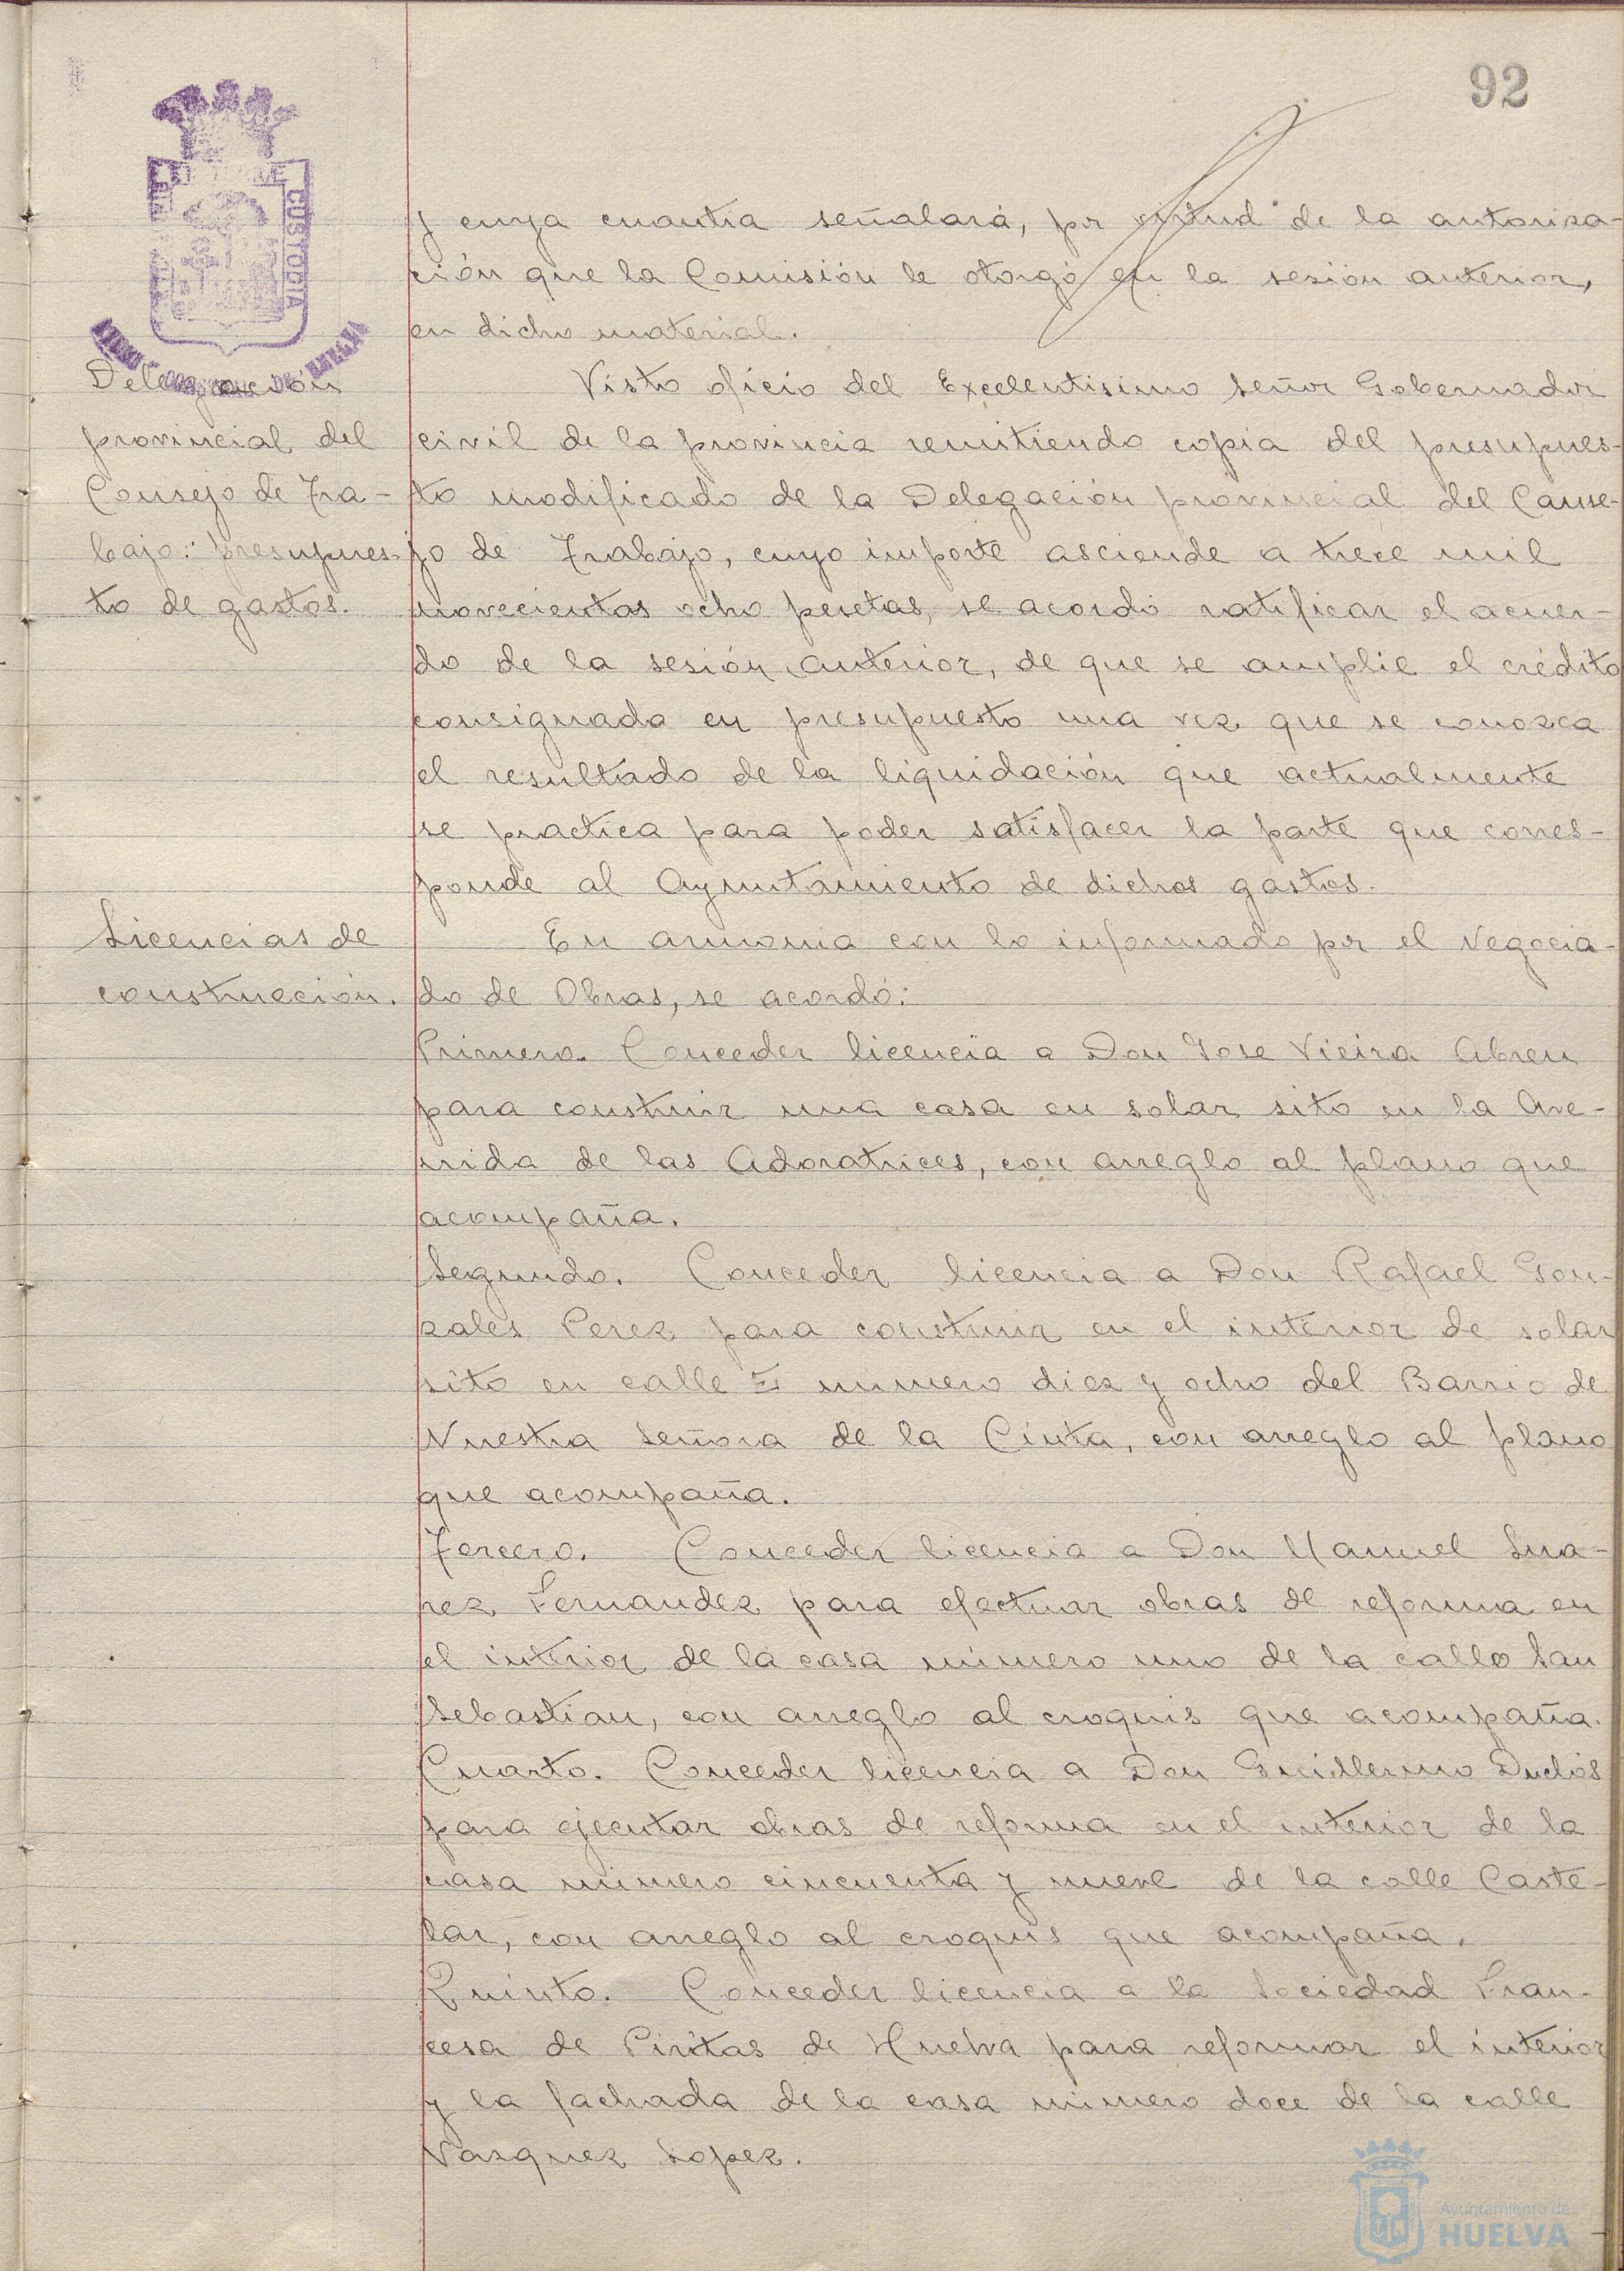 92
y cuya cuantia señalará, por virtud de la autoriza-
ción que la Comisión le otorgó en la sesión anterior,
en dicho material.
Delegación
provincial del
Consejo de Tra-
bajo: presupues-
to de gastos.
Visto oficio del Excelentisimo Señor Gobernador
civil de la provincia remitiendo copia del presupues-
to modificado de la Delegación provincial del Conse-
jo de Trabajo, cuyo importe asciende a trece mil
novecientas ocho pesetas, se acordó ratificar el acuer-
do de la sesión anterior, de que se amplie el crédito
consignado en presupuesto una vez que se conozca
el resultado de la liquidación que actualmente
se practica para poder satisfacer la parte que corres-
ponde al Ayuntamiento de dichos gastos.
Licencias de
construcción.
En armonia con lo informado por el Negocia-
do de Obras, se acordó:
Primero. Conceder licencia a Don Jose Vieira Abreu
para construir una casa en solar sito en la Ave-
nida de las Adoratrices, con arreglo al plano que
acompaña.
Segundo. Conceder licencia a Don Rafael Gon-
zales Perez para construir en el interior de solar
sito en calle E numero diez y ocho del Barrio de
Nuestra Señora de la Cinta, con arreglo al plano
que acompaña.
Tercero. Conceder licencia a Don Manuel Sua-
rez Fernandez para efectuar obras de reforma en
el interior de la casa numero uno de la calle San
Sebastian, con arreglo al croquis que acompaña.
Cuarto. Conceder licencia a Don Guillermo Duclós
para ejecutar obras de reforma en el interior de la
casa numero cincuenta y nueve de la calle Caste-
lar, con arreglo al croquis que acompaña.
Quinto. Conceder licencia a la Sociedad Fran-
cesa de Piritas de Huelva para reformar el interior
y la fachada de la casa numero doce de la calle
Vazquez Lopez.
CUSTODIA
Ayuntamiento de
HUELVA